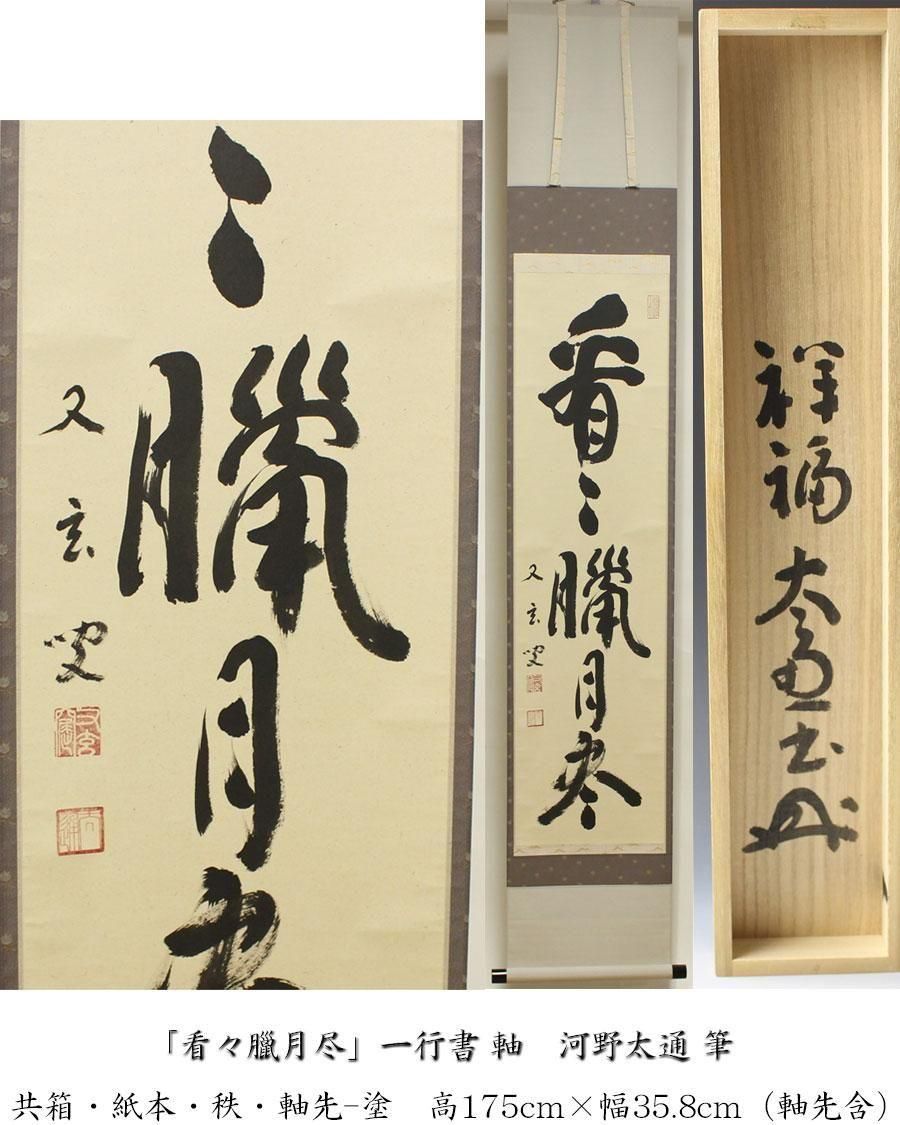 看々臘月尽
又玄叟
祥福 太通書
「看々臘月尽」一行書 軸　河野太通 筆
共箱・紙本・秩・軸先−塗　高175cm×幅35.8cm（軸先含）